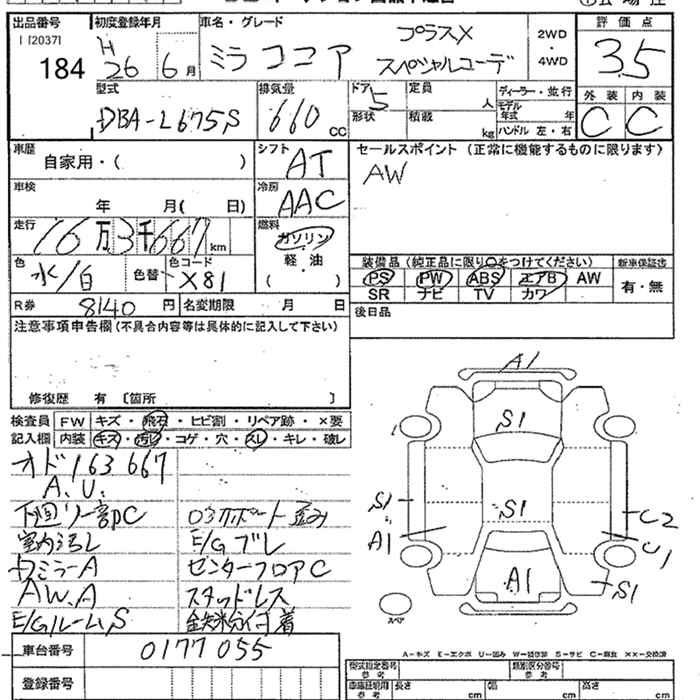 出品番号 初度登録年月 車名・グレード
112037I
184 H 26 6月 ミラ ココア プラスX スペシャルコーデ 2WD ・ 4WD 評価点 3.5
型式 排気量 ドア 定員 人 ディーラー・並行
DBA-L675S 660 CC 5 形状 積載 kg モデル年式 年 ハンドル 左・右
外装 内装
C C
車歴 自家用・( ) シフト AT セールスポイント (正常に機能するものに限ります)
AW
車検 年 月( 日) 冷房 AAC
走行 16万3千667km 燃料 ガソリン 軽・油 ( )
色 水/白 色替 色コード X81
装備品 (純正品に限り○をつけてください) 新車保証書
PS PW ABS エアB AW 有・無
SR ナビ TV カワ
R券 8140円 名変期限 月 日 後日品
注意事項申告欄(不具合内容等は具体的に記入して下さい)
修復歴 有 〔箇所 〕
検査員 FW キズ・飛石・ヒビ割・リペア跡・×要
記入欄 内装 キズ・汚れ・コゲ・穴・スレ・キレ・破レ
オド163667
A.U.
下回り一部PC ロアサポート歪み
室内汚レ E/Gブレ
ミラーA センターフロアC
AW.A スタッドレス
E/GルームS 鉄粉付着
車台番号 0177055
登録番号
A1
S1
S1
S1
A1
C2
C1
A1
S1
スペア
A-キズ E-エクボ U-凹み W-補修跡 S-サビ C-腐食 ××-交換済
型式指定番号 参考 類別区分番号 参考
車庫証明用 参考 長さ cm 幅 cm 高さ cm